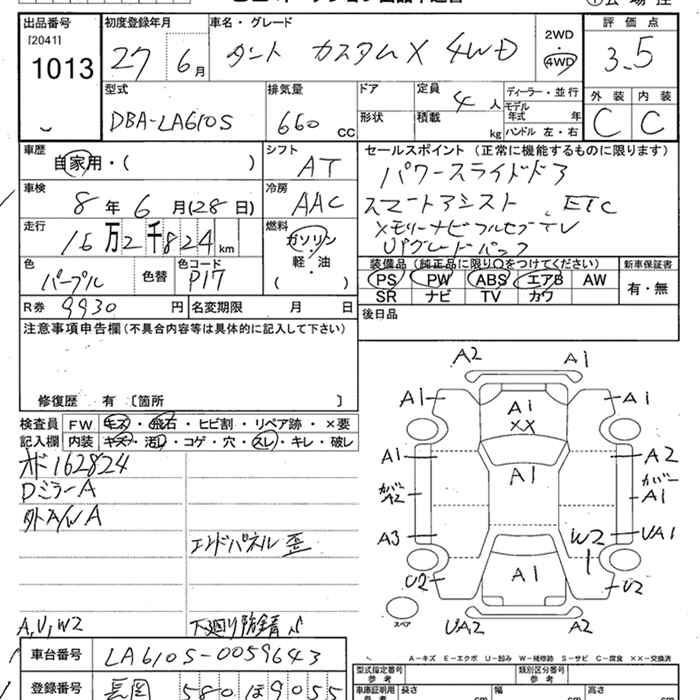 出品番号 初度登録年月 車名・グレード 評価点
[2041]
1013
27年 6月 タント カスタムX 4WD
2WD・4WD
3.5
型式 排気量 ドア 定員 ディーラー・並行
DBA-LA610S 660 CC 4人
形状 積載 kg モデル年式 年
ハンドル 左・右
外装 内装
C C
車歴 自家用・( )
シフト AT
セールスポイント (正常に機能するものに限ります)
パワースライドドア
スマートアシスト. ETC
メモリーナビ フルセグTV
UPグレードパック
車検 8年 6月(28日)
冷房 AAC
走行 16万2千824km
燃料 ガソリン・軽・油 ( )
色 パープル 色替 色コード P17
装備品 (純正品に限り○をつけてください) 新車保証書
PS PW ABS エアB AW 有・無
SR ナビ TV カワ
R券 9930円 名変期限 月 日
後日品
注意事項申告欄 (不具合内容等は具体的に記入して下さい)
修復歴 有 〔箇所 〕
検査員記入欄
FW キズ・飛石・ヒビ割・リペア跡・×要
内装 キズ・汚レ・コゲ・穴・スレ・キレ・破レ
オド162824
Dミラー A
外A/W A
エンドパネル歪
A,U,W2 下廻り防錆
A2 A1
A1 A1 A1
XX
A1 A1 A2
カバーA2 カバーA1
A3 W2 UA1
U2 A1 U2
UA2 A2
スペア
A-キズ E-エクボ U-凹み W-補修跡 S-サビ C-腐食 XX-交換済
車台番号 LA610S-0059643
型式指定番号 参考 類別区分番号 参考
登録番号 長岡 580 ほ 9055
車庫証明用 参考 長さ cm 幅 cm 高さ cm